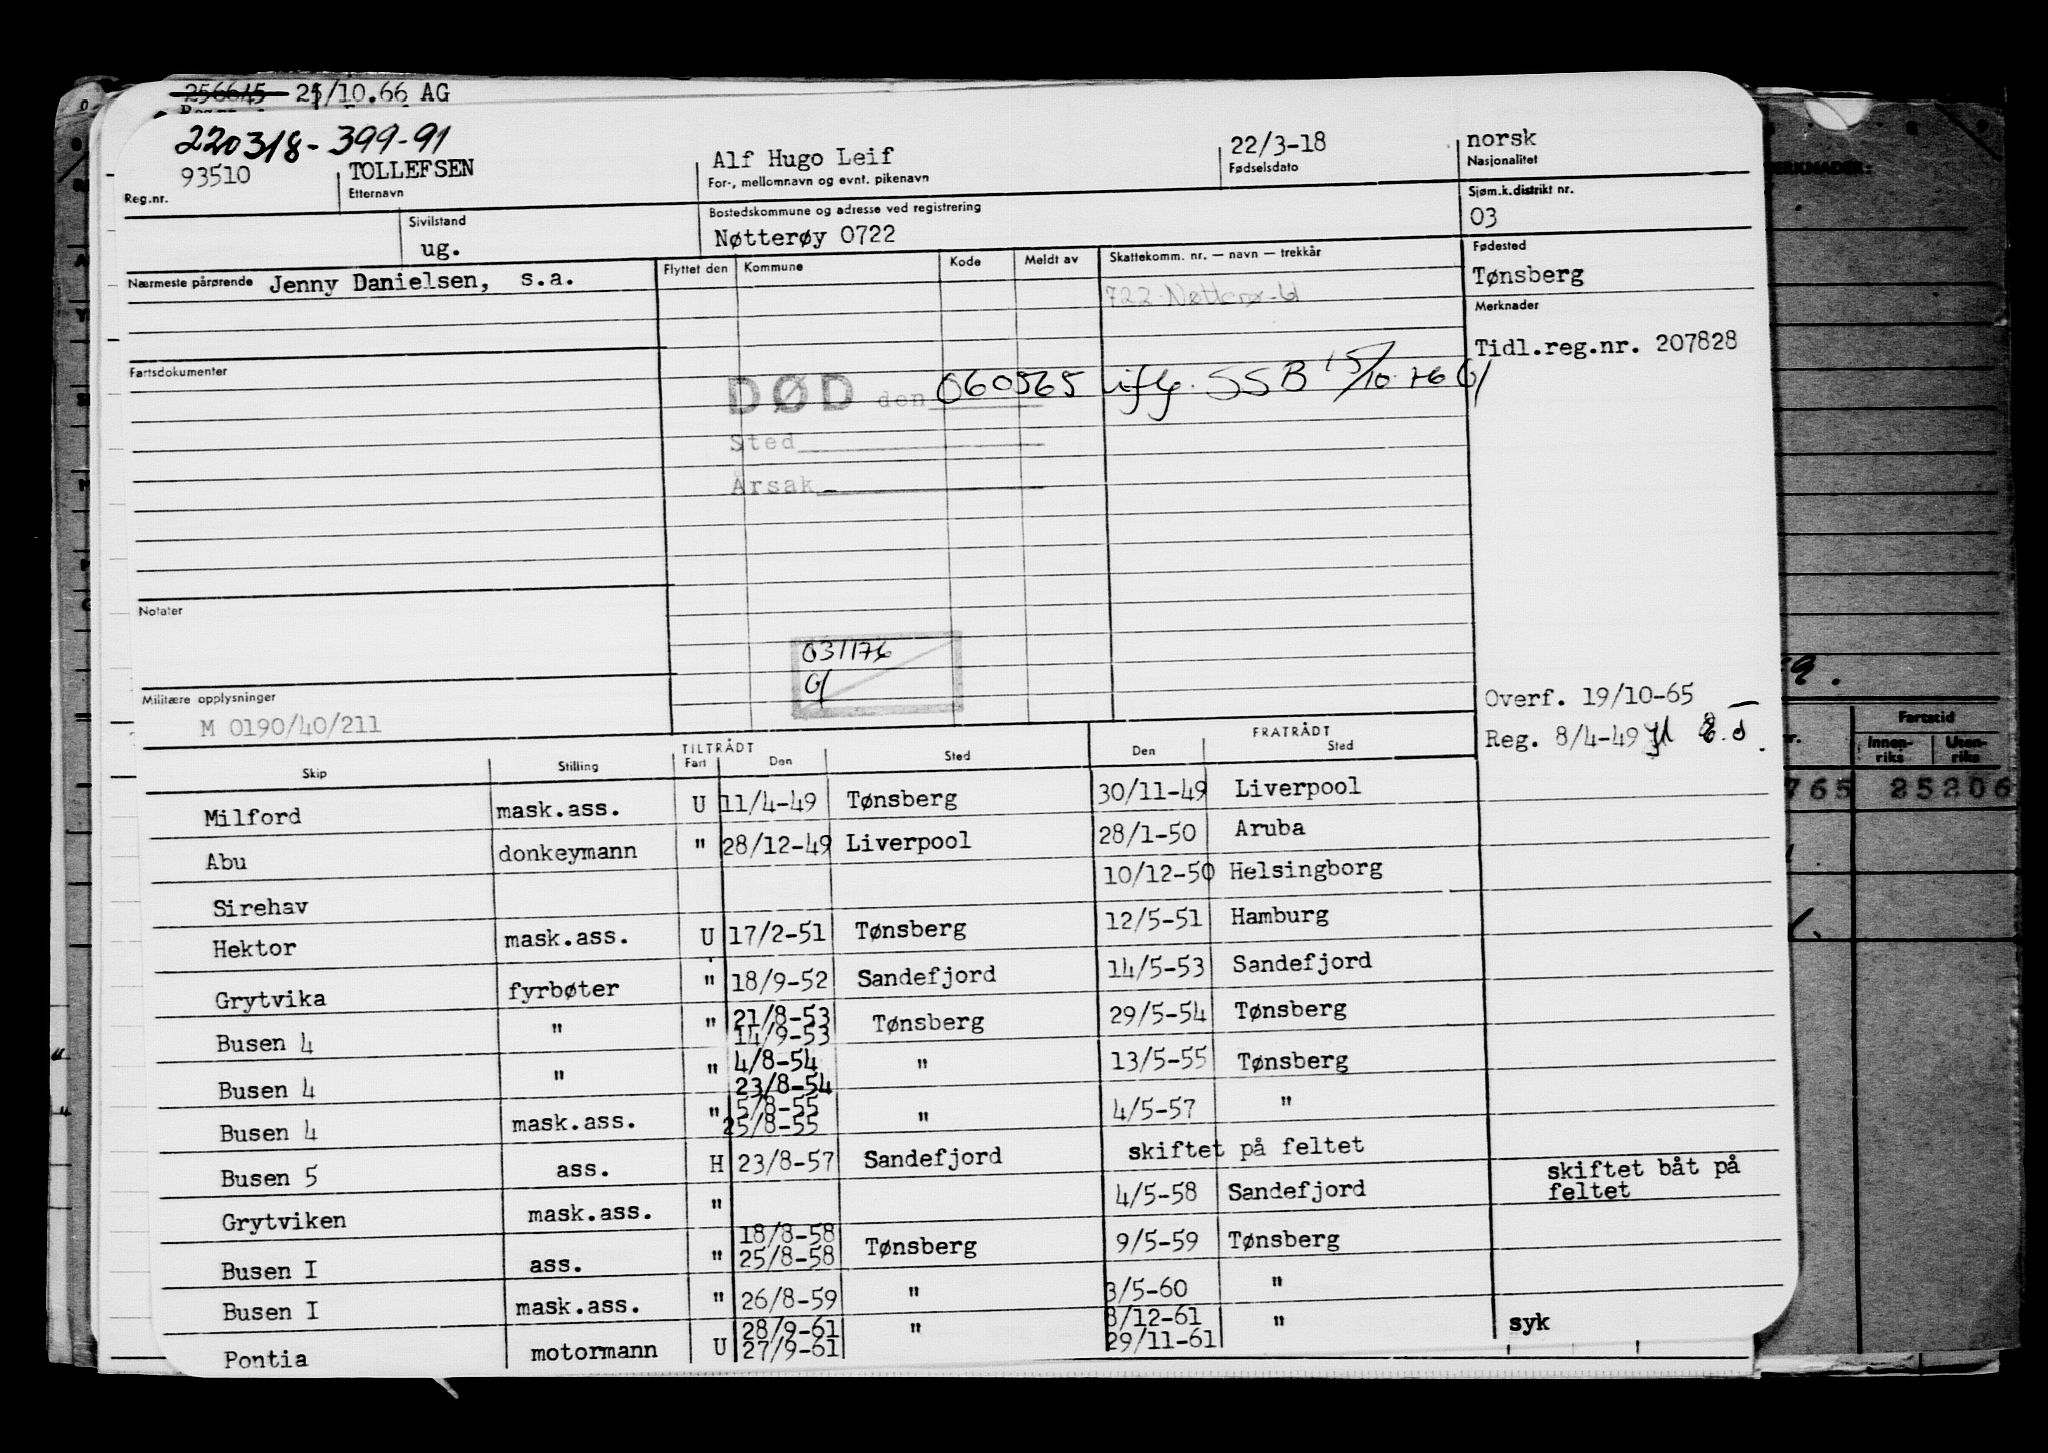 256645 25/10.66 AG
220318-399-91
93510 TOLLEFSEN Alf Hugo Leif 22/3-18 norsk
Reg.nr. Etternavn For-, mellomnavn og evnt. pikenavn Fødselsdato Nasjonalitet
Sivilstand Bostedskommune og adresse ved registrering Sjøm.k.distrikt nr.
ug. Nøtterøy 0722 03
Nærmeste pårørende Jenny Danielsen, s.a. Flyttet den Kommune Kode Meldt av Skattekomm. nr. — navn — trekkår Fødested
722 Nøtterø Tønsberg
Merknader
Tidl.reg.nr. 207828
Fartsdokumenter
DØD den 060565 iflg. SSB 15/10-76
Sted
Årsak
Notater
031176
Militære opplysninger
M 0190/40/211
Overf. 19/10-65
Reg. 8/4-49
Skip Stilling TILTRÅDT Fart Den Sted FRATRÅDT Den Sted
Milford mask.ass. U 11/4-49 Tønsberg 30/11-49 Liverpool
Abu donkeymann " 28/12-49 Liverpool 28/1-50 Aruba
Sirehav 10/12-50 Helsingborg
Hektor mask.ass. U 17/2-51 Tønsberg 12/5-51 Hamburg
Grytvika fyrbøter " 18/9-52 Sandefjord 14/5-53 Sandefjord
Busen 4 " " 21/8-53 14/9-53 Tønsberg 29/5-54 Tønsberg
Busen 4 " " 4/8-54 23/8-54 " 13/5-55 Tønsberg
Busen 4 mask.ass. " 5/8-55 25/8-55 " 4/5-57 "
Busen 5 ass. H 23/8-57 Sandefjord skiftet på feltet
skiftet båt på
feltet
Grytviken mask.ass. " 4/5-58 Sandefjord
Busen I ass. " 18/8-58 25/8-58 Tønsberg 9/5-59 Tønsberg
Busen I mask.ass. " 26/8-59 " 3/5-60 "
Pontia motormann U 28/9-61 27/9-61 " 8/12-61 29/11-61 " syk
MERKNADER:
Fartstid
Innen-
riks
Uten-
riks
765 25206